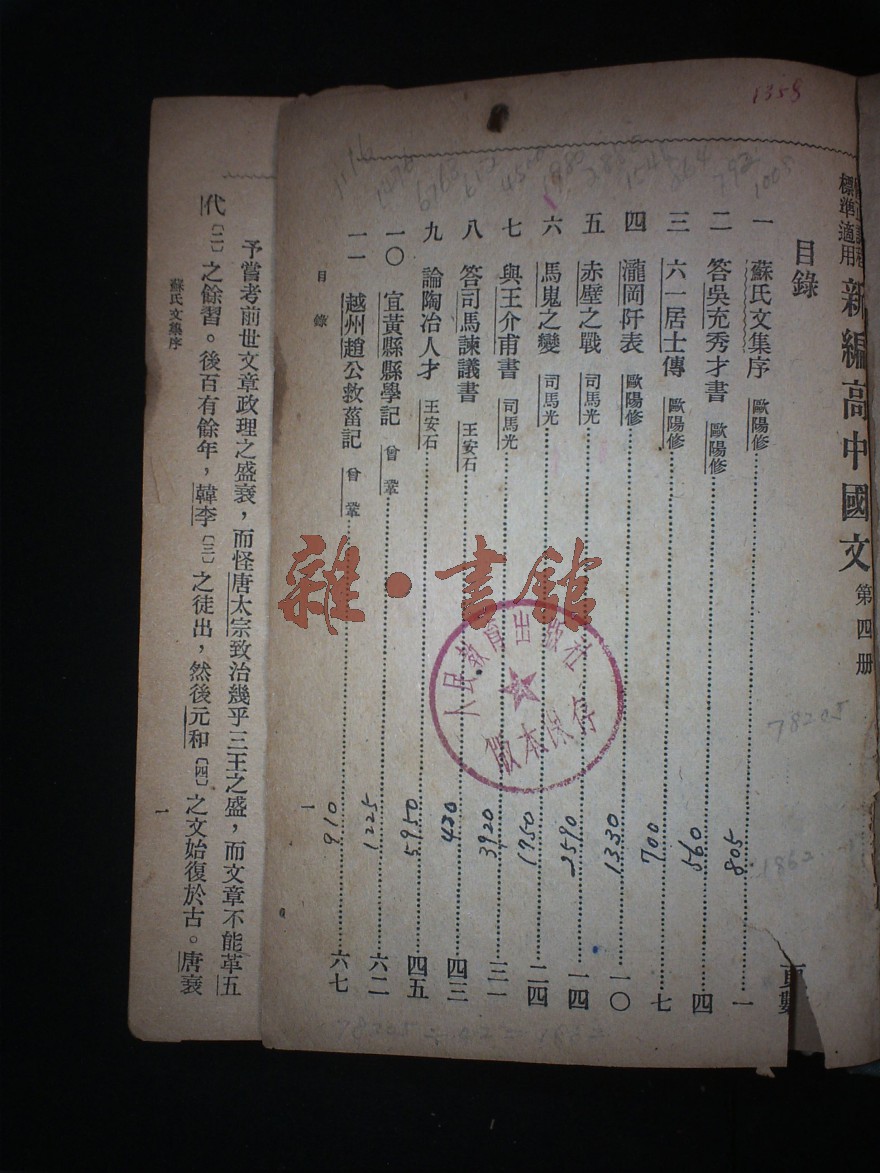 1358
標準適用 新編高中國文 第四册
目錄
頁數
一 蘇氏文集序 歐陽修 805 一
二 答吳充秀才書 歐陽修 560 四
三 六一居士傳 歐陽修 700 七
四 瀧岡阡表 歐陽修 1330 一〇
五 赤壁之戰 司馬光 2590 一四
六 馬嵬之變 司馬光 1950 二四
七 與王介甫書 司馬光 3920 三一
八 答司馬諫議書 王安石 420 四三
九 論陶冶人才 王安石 5950 四五
一〇 宜黃縣縣學記 曾鞏 1225 六二
一一 越州趙公救菑記 曾鞏 910 六七
目錄
一
人民教育出版社
版本保存
雜·書館
78205
1862
予嘗考前世文章政理之盛衰，而怪唐太宗致治幾乎三王之盛，而文章不能革五
代〔二〕之餘習。後百有餘年，韓李〔三〕之徒出，然後元和〔四〕之文始復於古。唐衰
蘇氏文集序
一